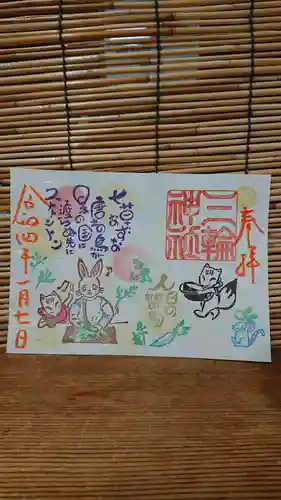 奉拝
三輪
神社
人日の
節句
七草なずな
唐土の鳥が
日本の国に
渡らぬ先に
令和四年一月七日